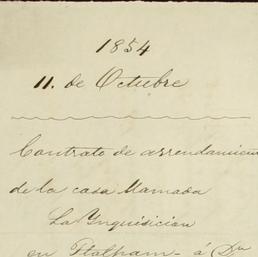 1854
11. de Octubre
Contrato de arrendamien
de la casa llamada
La Ynquisicion
en Tlalpam - á Dn